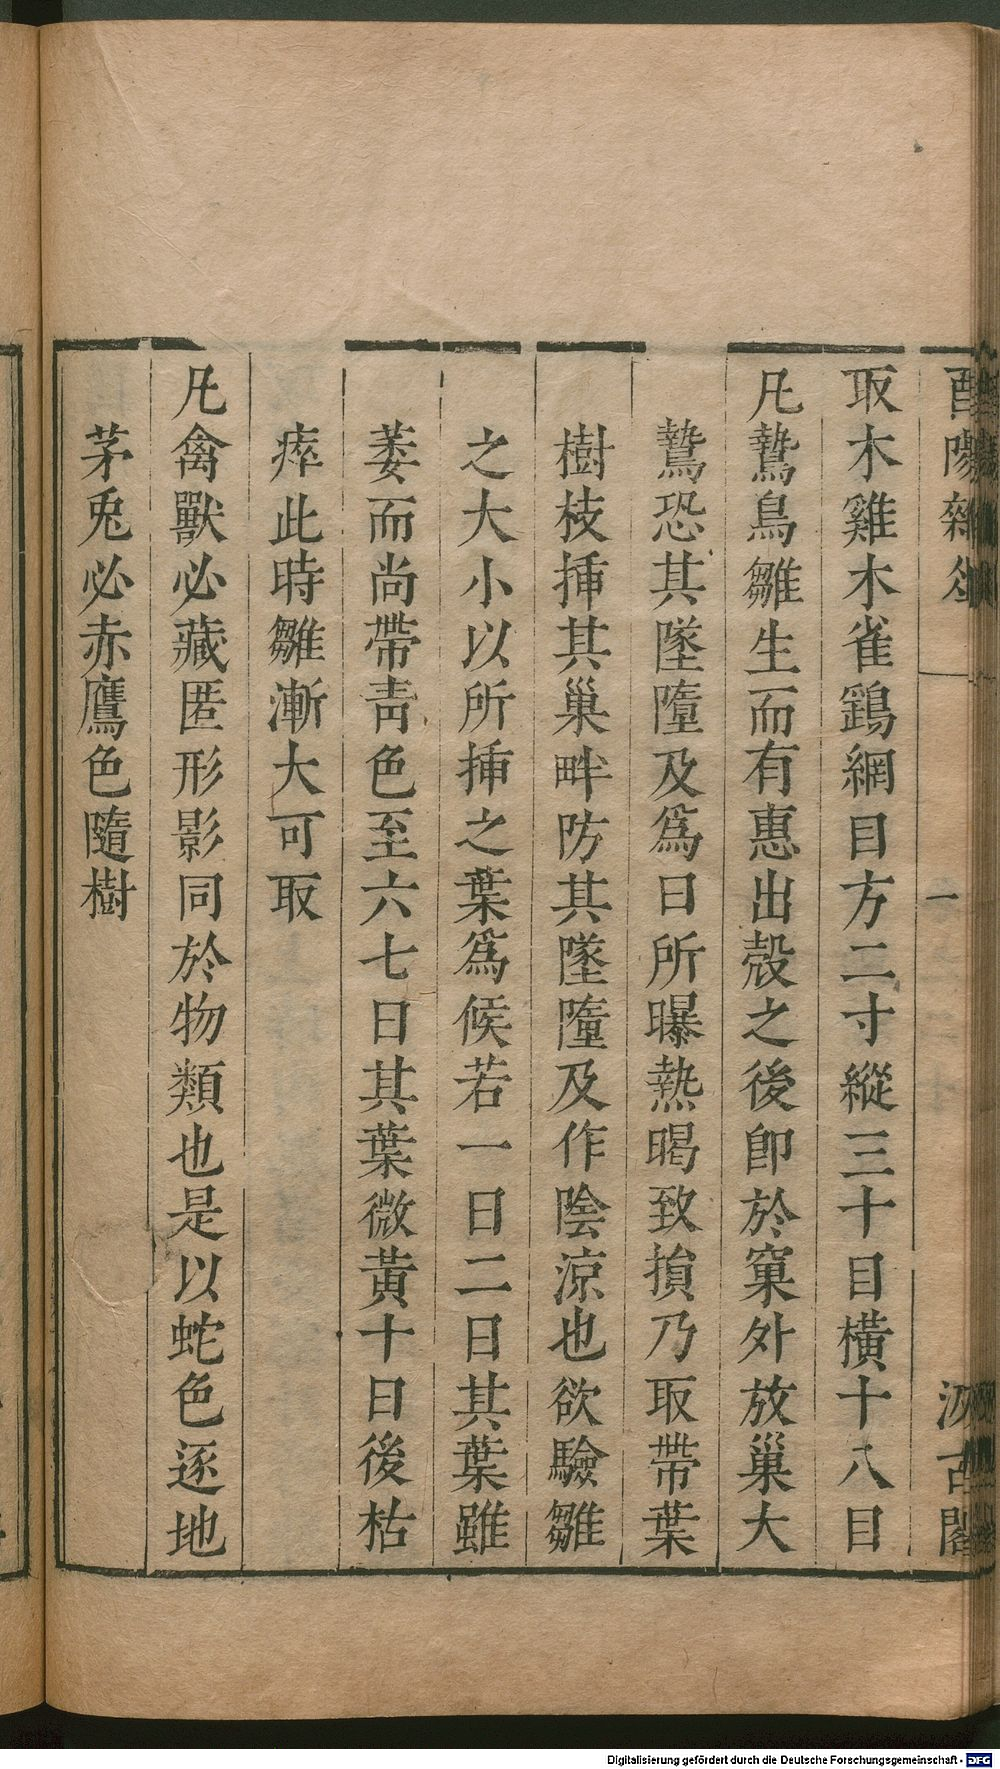 酉陽雜俎
一
汲古閣
取木雞木雀鷂網目方二寸縱三十目橫十八目
凡鷙鳥雛生而有惠出殼之後卽於窠外放巢大
鷙恐其墜墮及爲日所曝熱暍致損乃取帶葉
樹枝揷其巢畔防其墜墮及作陰涼也欲驗雛
之大小以所揷之葉爲候若一日二日其葉雖
萎而尚帶靑色至六七日其葉微黃十日後枯
瘁此時雛漸大可取
凡禽獸必藏匿形影同於物類也是以蛇色逐地
茅兎必赤鷹色隨樹
Digitalisierung gefördert durch die Deutsche Forschungsgemeinschaft - DFG